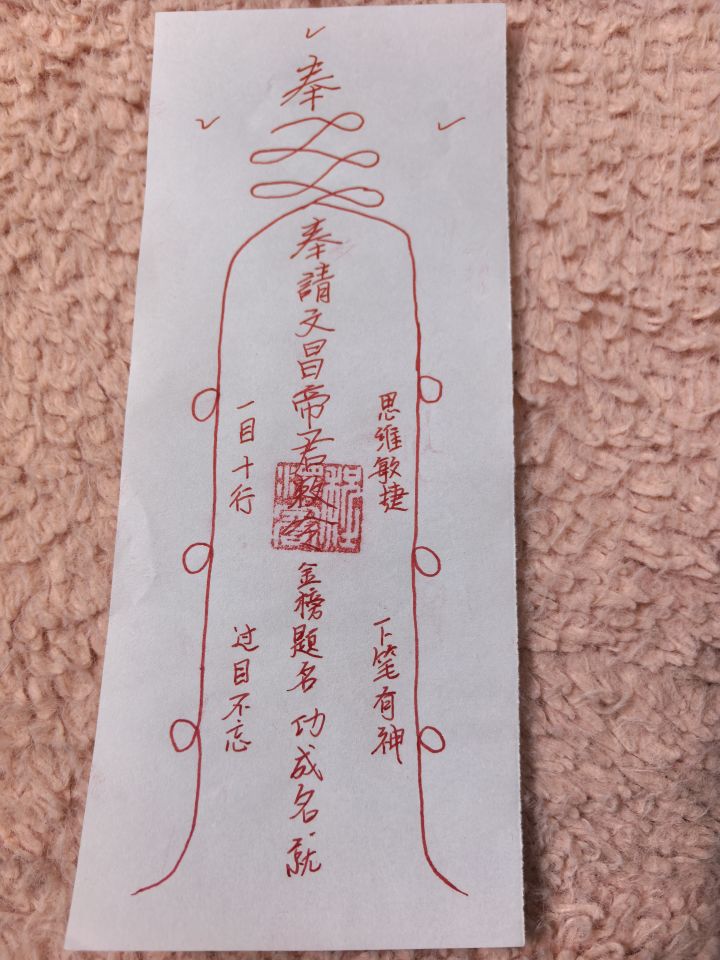 奉
奉請文昌帝君敕令金榜題名功成名就
思维敏捷
下笔有神
一目十行
过目不忘